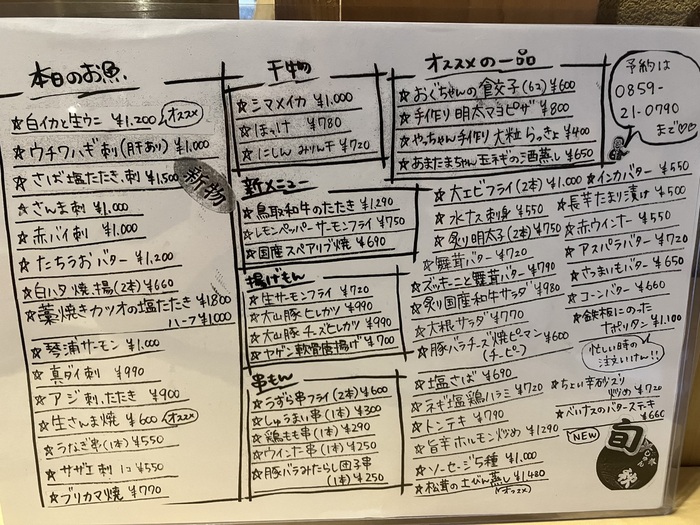 本日のお魚
☆白イカと生ウニ ¥1,200 オススメ
☆ウチワハギ刺(肝あり) ¥1,000
☆さば塩たたき、刺 ¥1,500
新物
☆さんま刺 ¥1,000
☆赤バイ刺 ¥1,000
☆たちうおバター ¥1,200
☆白ハタ焼、揚(2本) ¥660
☆藁焼きカツオの塩たたき ¥1,800
ハーフ ¥1000
☆琴浦サーモン ¥1,000
☆真ダイ刺 ¥990
☆アジ刺、たたき ¥900
☆生さんま焼 ¥600 オススメ
☆うなぎ串(1本) ¥550
☆サザエ刺 1コ ¥550
☆ブリカマ焼 ¥770
干物
☆シマメイカ ¥1,000
☆ほっけ ¥780
☆にしんみりん干 ¥720
新メニュー
☆鳥取和牛のたたき ¥1,290
☆レモンペッパーサーモンフライ ¥750
☆国産スペアリブ焼 ¥690
揚げもん
☆生サーモンフライ ¥720
☆大山豚ヒレカツ ¥990
☆大山豚チーズヒレカツ ¥990
☆ヤゲン軟骨唐揚げ ¥700
串もん
☆うずら串フライ(2本) ¥600
☆しゅうまい串(1本) ¥300
☆鶏もも串(1本) ¥290
☆ウインナー串(1本) ¥250
☆豚バラみたらし団子串
(1本) ¥250
オススメの一品
☆おぐちゃんの餃子(6コ) ¥600
☆手作り明太マヨピザ ¥800
☆やっちゃん手作り大粒らっきょ ¥400
☆あまたまちゃん玉ネギの酒蒸し ¥650
予約は
0859-
21-0790
まで♡♡
☆大エビフライ(2本) ¥1,000
☆水ナス刺身 ¥550
☆炙り明太子(2本) ¥750
☆舞茸バター ¥720
☆ズッキーニと舞茸バター ¥790
☆炙り国産和牛サラダ ¥980
☆大根サラダ ¥770
☆豚バラチーズ焼ピーマン ¥600
(チーピー)
☆塩さば ¥690
☆ネギ塩鶏ハラミ ¥720
☆トンテキ ¥790
☆旨辛ホルモン炒め ¥1,290
☆ソーセージ5種 ¥1,000
☆松茸の土びん蒸し ¥1,480
オススメ
☆インカバター ¥550
☆長芋たまり漬け ¥500
☆赤ウインナー ¥550
☆アスパラバター ¥720
☆さつまいもバター ¥650
☆コーンバター ¥660
☆鉄板にのった
ナポリタン ¥1,100
忙しい時の
注文いけん!!
☆ちょい辛砂ズリ
炒め ¥720
☆べいナスのバターステーキ
¥660
NEW
旬